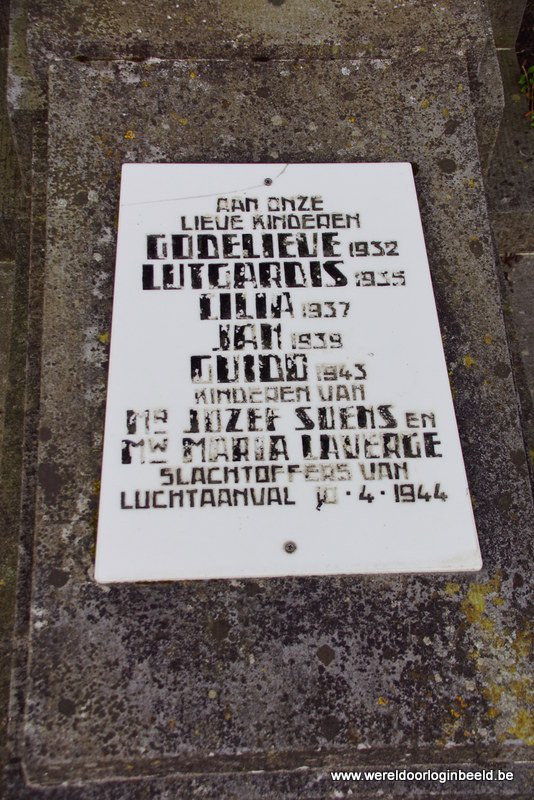 AAN ONZE
LIEVE KINDEREN
GODELIEVE 1932
LUTGARDIS 1935
LILIA 1937
JAN 1939
GUIDO 1943
KINDEREN VAN
MR JOZEF SOENS EN
MW MARIA LAVERGE
SLACHTOFFERS VAN
LUCHTAANVAL 10·4·1944
www.wereldoorloginbeeld.be